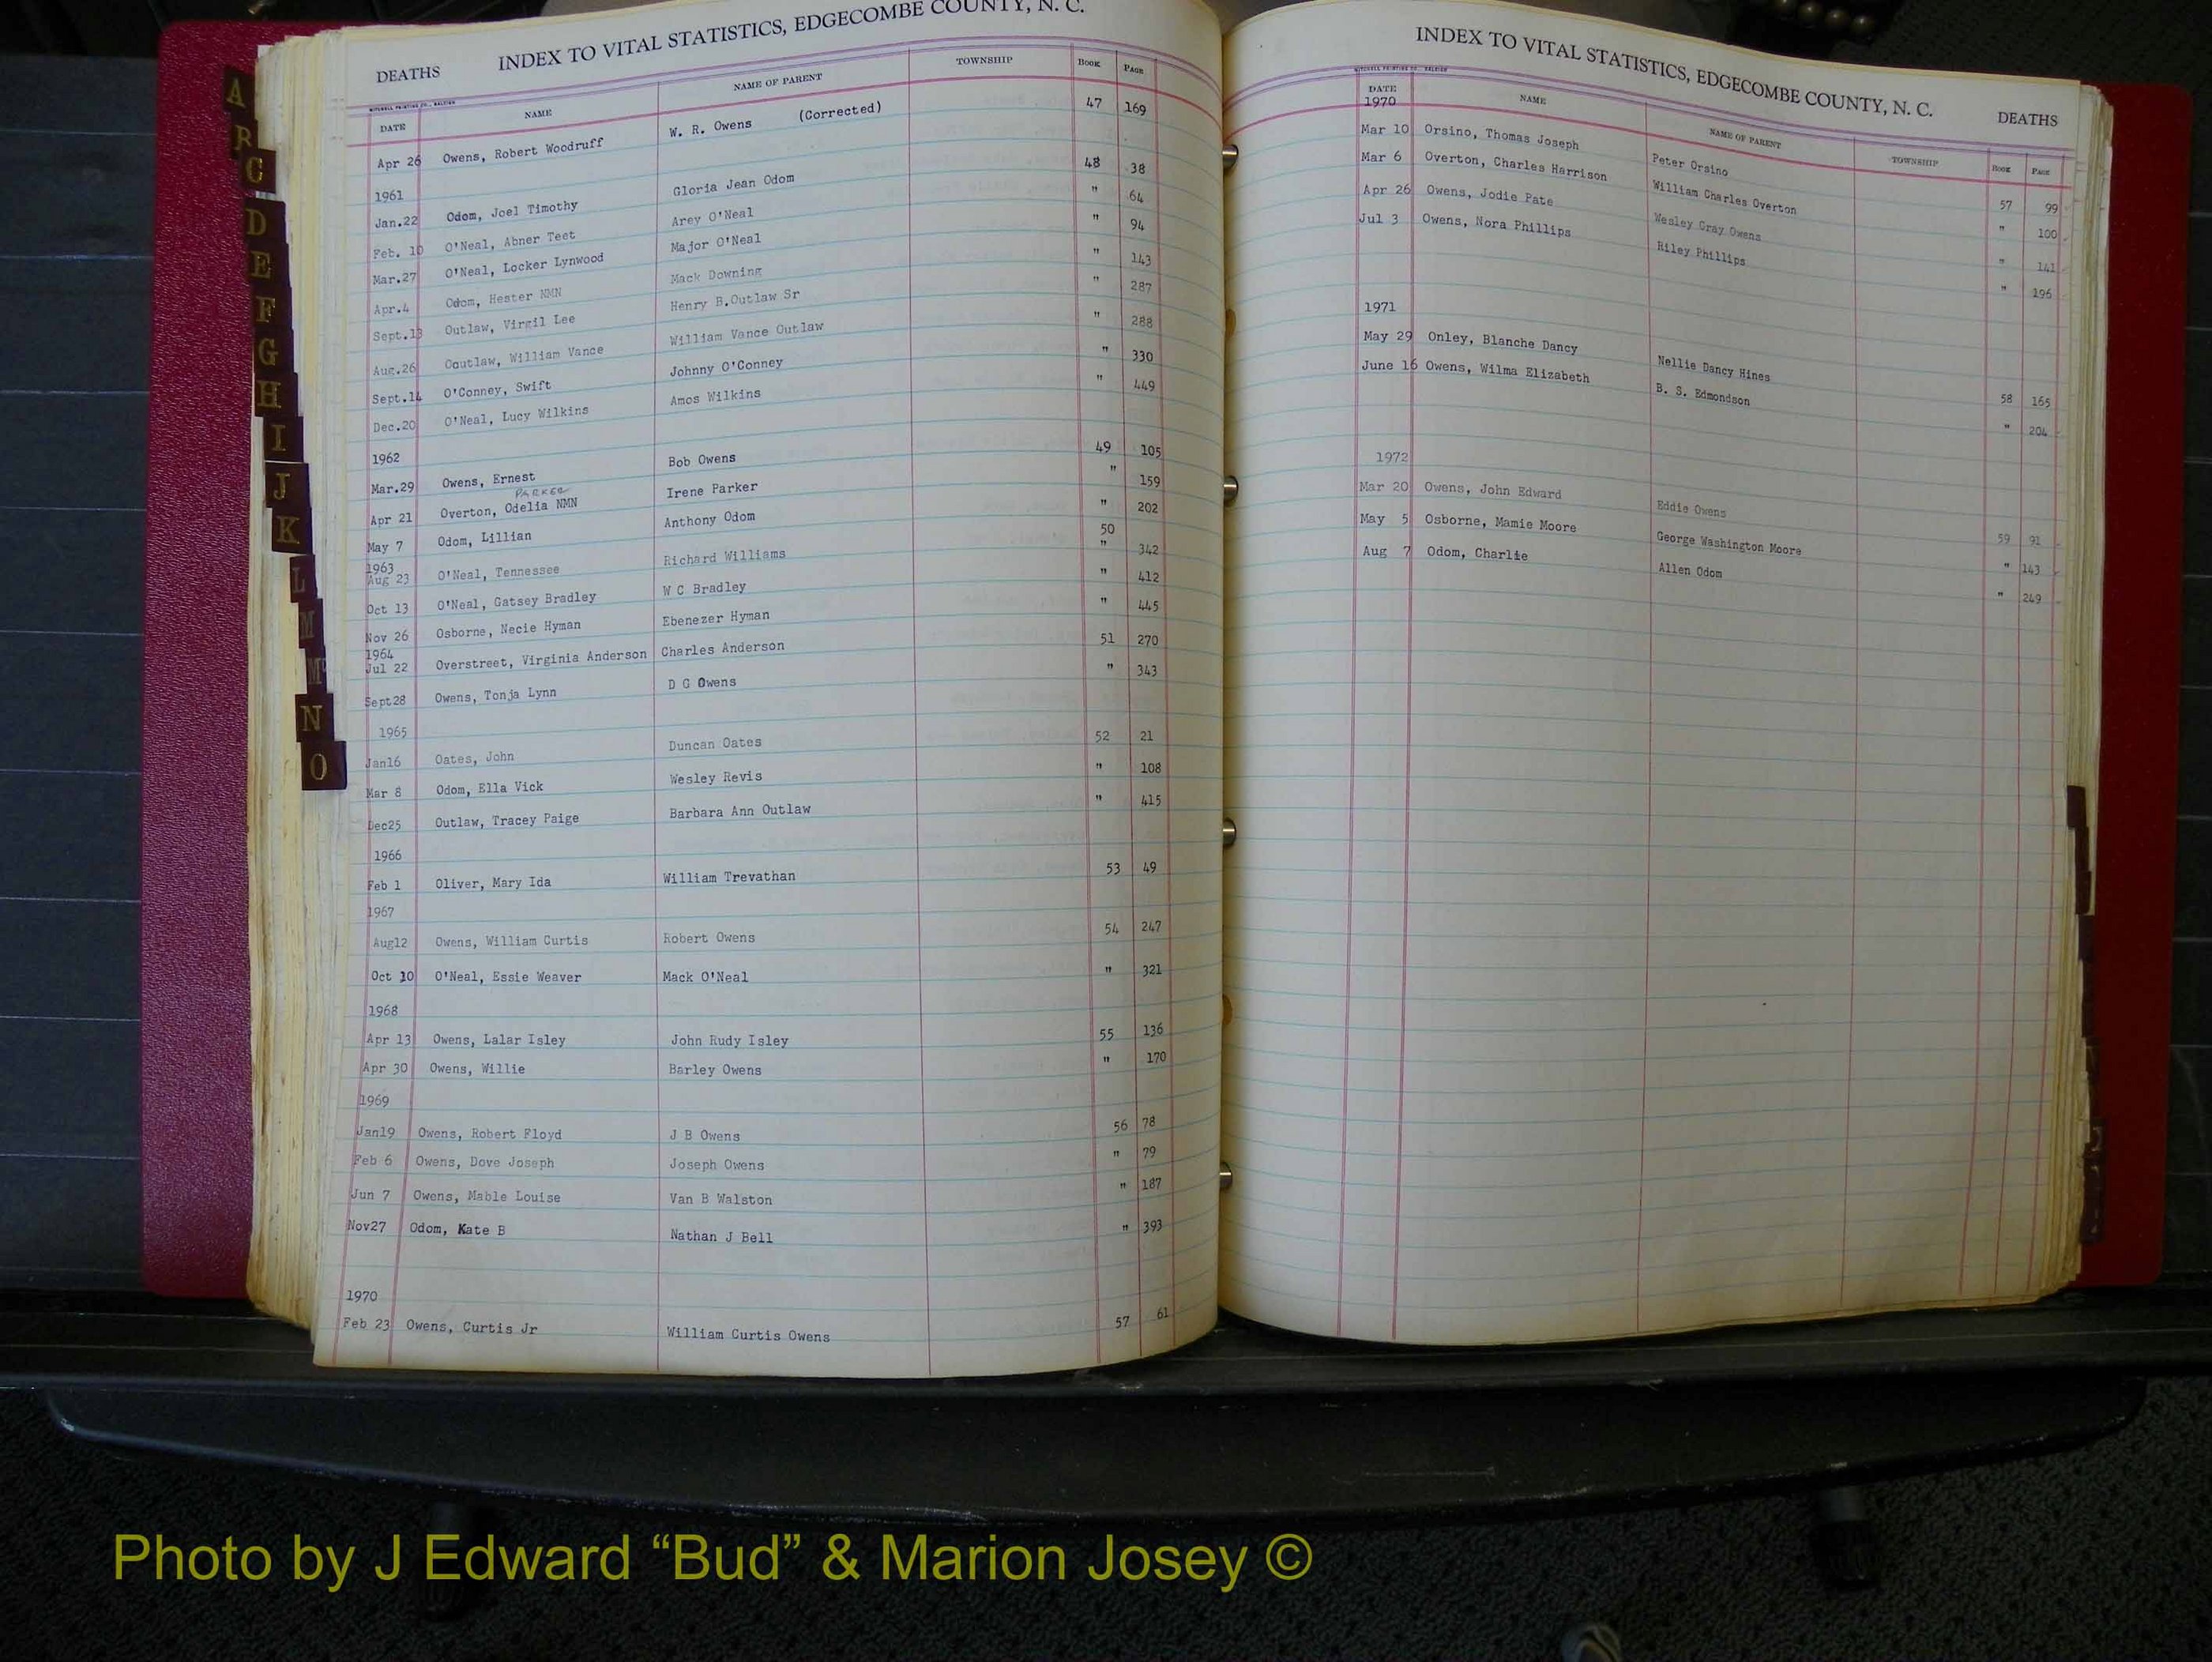 DEATHS INDEX TO VITAL STATISTICS, EDGECOMBE COUNTY, N. C.
MITCHELL PRINTING CO., RALEIGH
DATE NAME NAME OF PARENT TOWNSHIP BOOK PAGE
Apr 26 Owens, Robert Woodruff W. R. Owens (Corrected) 47 169
1961
Jan.22 Odom, Joel Timothy Gloria Jean Odom 48 38
Feb. 10 O'Neal, Abner Teet Arey O'Neal " 64
Mar.27 O'Neal, Locker Lynwood Major O'Neal " 94
Apr.4 Odom, Hester NMN Mack Downing " 143
Sept.13 Outlaw, Virgil Lee Henry B.Outlaw Sr " 287
Aug.26 Ooutlaw, William Vance William Vance Outlaw " 288
Sept.14 O'Conney, Swift Johnny O'Conney " 330
Dec.20 O'Neal, Lucy Wilkins Amos Wilkins " 449
1962
Mar.29 Owens, Ernest Bob Owens 49 105
PARKER
Apr 21 Overton, Odelia NMN Irene Parker " 159
May 7 Odom, Lillian Anthony Odom " 202
1963 50
Aug 23 O'Neal, Tennessee Richard Williams " 342
Oct 13 O'Neal, Gatsey Bradley W C Bradley " 412
Nov 26 Osborne, Necie Hyman Ebenezer Hyman " 445
1964
Jul 22 Overstreet, Virginia Anderson Charles Anderson 51 270
Sept28 Owens, Tonja Lynn D G Owens " 343
1965
Jan16 Oates, John Duncan Oates 52 21
Mar 8 Odom, Ella Vick Wesley Revis " 108
Dec25 Outlaw, Tracey Paige Barbara Ann Outlaw " 415
1966
Feb 1 Oliver, Mary Ida William Trevathan 53 49
1967
Aug12 Owens, William Curtis Robert Owens 54 247
Oct 10 O'Neal, Essie Weaver Mack O'Neal " 321
1968
Apr 13 Owens, Lalar Isley John Rudy Isley 55 136
Apr 30 Owens, Willie Barley Owens " 170
1969
Jan19 Owens, Robert Floyd J B Owens 56 78
Feb 6 Owens, Dove Joseph Joseph Owens " 79
Jun 7 Owens, Mable Louise Van B Walston " 187
Nov27 Odom, Kate B Nathan J Bell " 393
1970
Feb 23 Owens, Curtis Jr William Curtis Owens 57 61
A
R
C
D
E
F
G
H
I
J
K
L
M
Mc
N
O
INDEX TO VITAL STATISTICS, EDGECOMBE COUNTY, N. C. DEATHS
MITCHELL PRINTING CO., RALEIGH
DATE NAME NAME OF PARENT TOWNSHIP BOOK PAGE
1970
Mar 10 Orsino, Thomas Joseph Peter Orsino 57 99
Mar 6 Overton, Charles Harrison William Charles Overton " 100
Apr 26 Owens, Jodie Pate Wesley Gray Owens " 141
Jul 3 Owens, Nora Phillips Riley Phillips " 196
1971
May 29 Onley, Blanche Dancy Nellie Dancy Hines 58 165
June 16 Owens, Wilma Elizabeth B. S. Edmondson " 204
1972
Mar 20 Owens, John Edward Eddie Owens 59 91
May 5 Osborne, Mamie Moore George Washington Moore " 143
Aug 7 Odom, Charlie Allen Odom " 249
Photo by J Edward “Bud” & Marion Josey ©